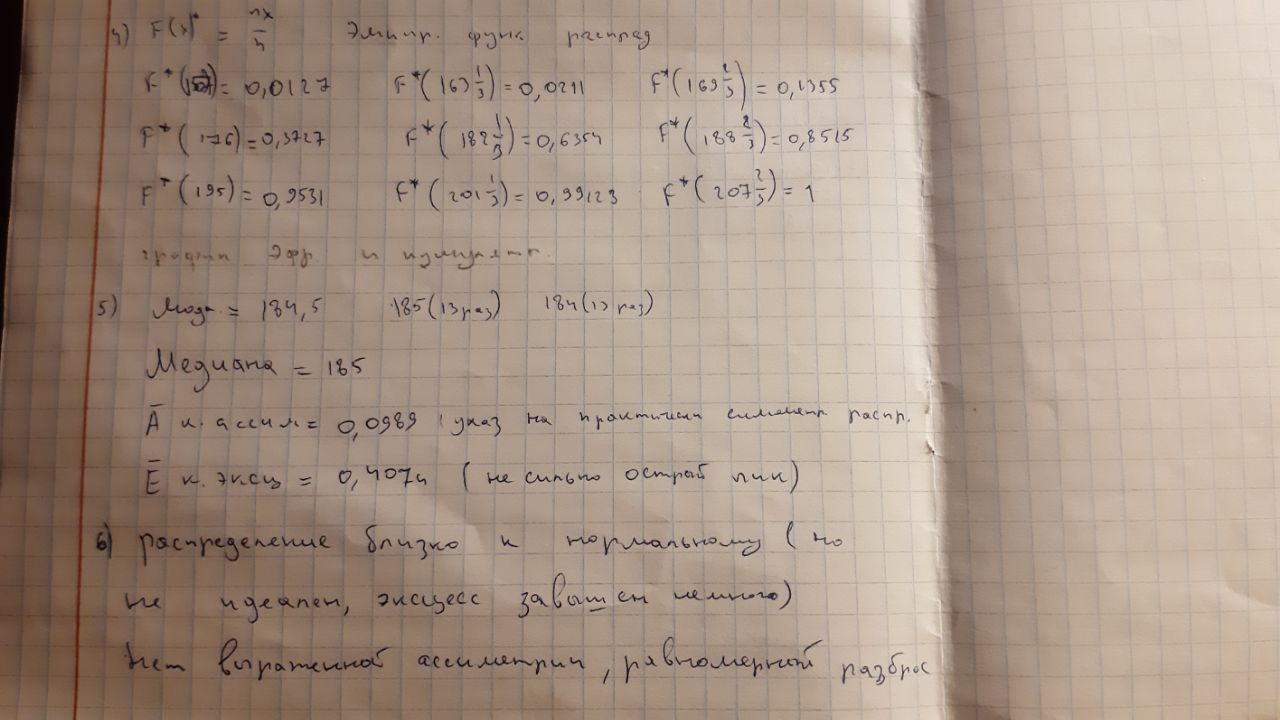 4) F(x)* = nx/n эмпир. функ распред
F*(157) = 0,0127 F*(163 1/3) = 0,0211 F*(169 2/3) = 0,1355
F*(176) = 0,3727 F*(182 1/3) = 0,6354 F*(188 2/3) = 0,8515
F*(195) = 0,9531 F*(201 1/3) = 0,99123 F*(207 2/3) = 1
график эфр и кумулят.
5) Мода = 184,5 185(13 раз) 184(13 раз)
Медиана = 185
A̅ к. ассим = 0,0989 (указ на практически симметр распр.
E̅ к. эксц = 0,4074 (не сильно острый пик)
6) распределение близко к нормальному (но
не идеален, эксцесс завышен немного)
Нет выраженной ассиметрии, равномерный разброс